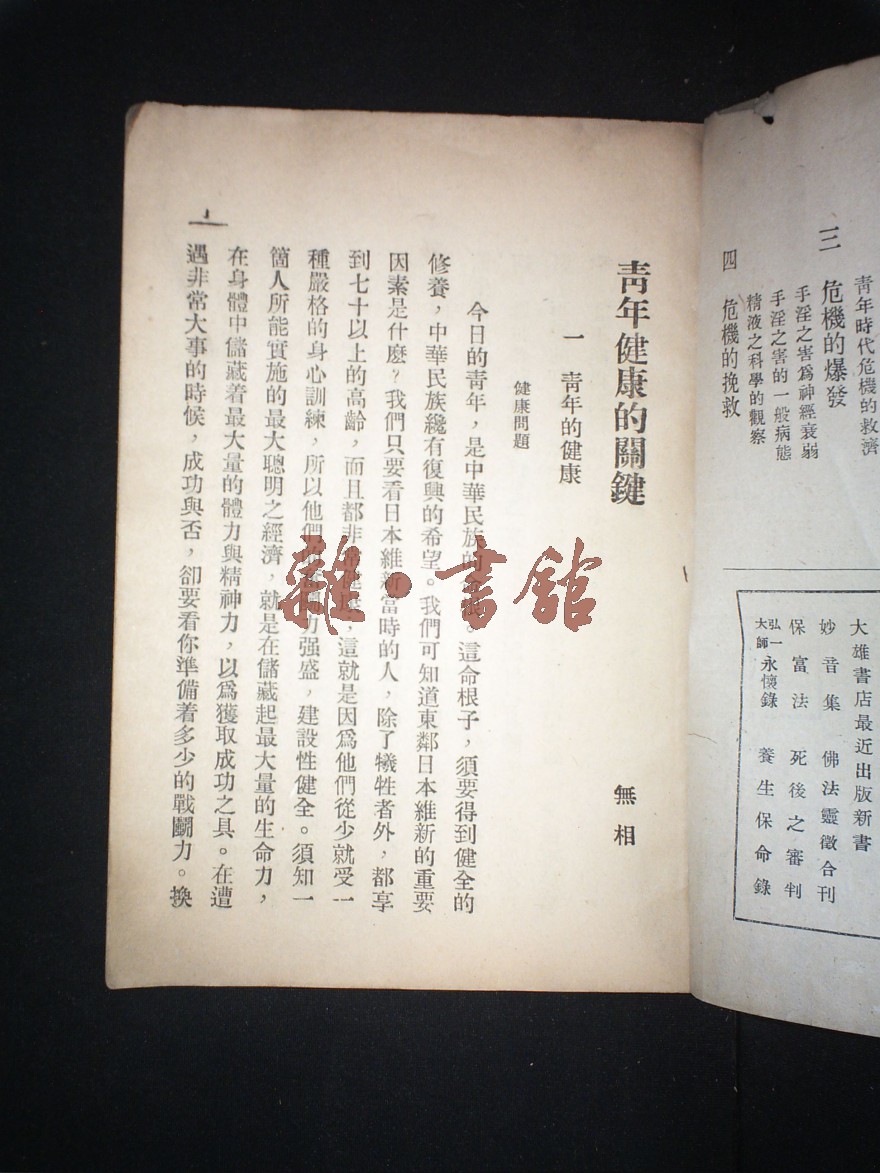 青年時代危機的救濟
三 危機的爆發
手淫之害爲神經衰弱
手淫之害的一般病態
精液之科學的觀察
四 危機的挽救
大雄書店最近出版新書
妙音集 佛法靈徵合刊
保富法 死後之審判
弘一大師永懷錄 養生保命錄
靑年健康的關鍵 無相
一 靑年的健康
健康問題
今日的靑年，是中華民族的。這命根子，須要得到健全的
修養，中華民族纔有復興的希望。我們可知道東鄰日本維新的重要
因素是什麼？我們只要看日本維新當時的人，除了犧牲者外，都享
到七十以上的高齡，而且都非，這就是因爲他們從少就受一
種嚴格的身心訓練，所以他們力强盛，建設性健全。須知一
箇人所能實施的最大聰明之經濟，就是在儲藏起最大量的生命力，
在身體中儲藏着最大量的體力與精神力，以爲獲取成功之具。在遭
遇非常大事的時候，成功與否，卻要看你準備着多少的戰鬭力。換
1
雜·書館